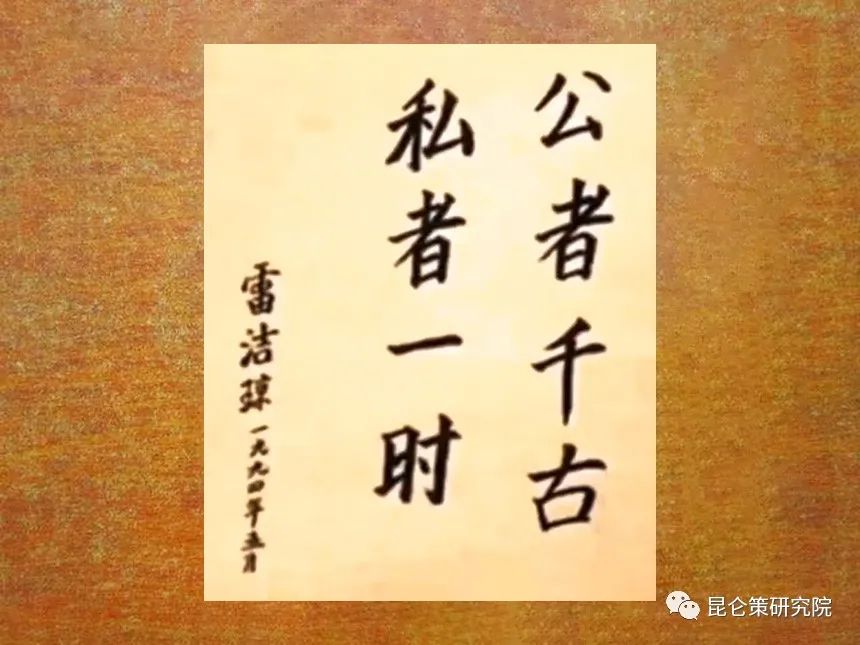 公者千古
私者一时
雷洁琼一九九四年五月
昆仑策研究院